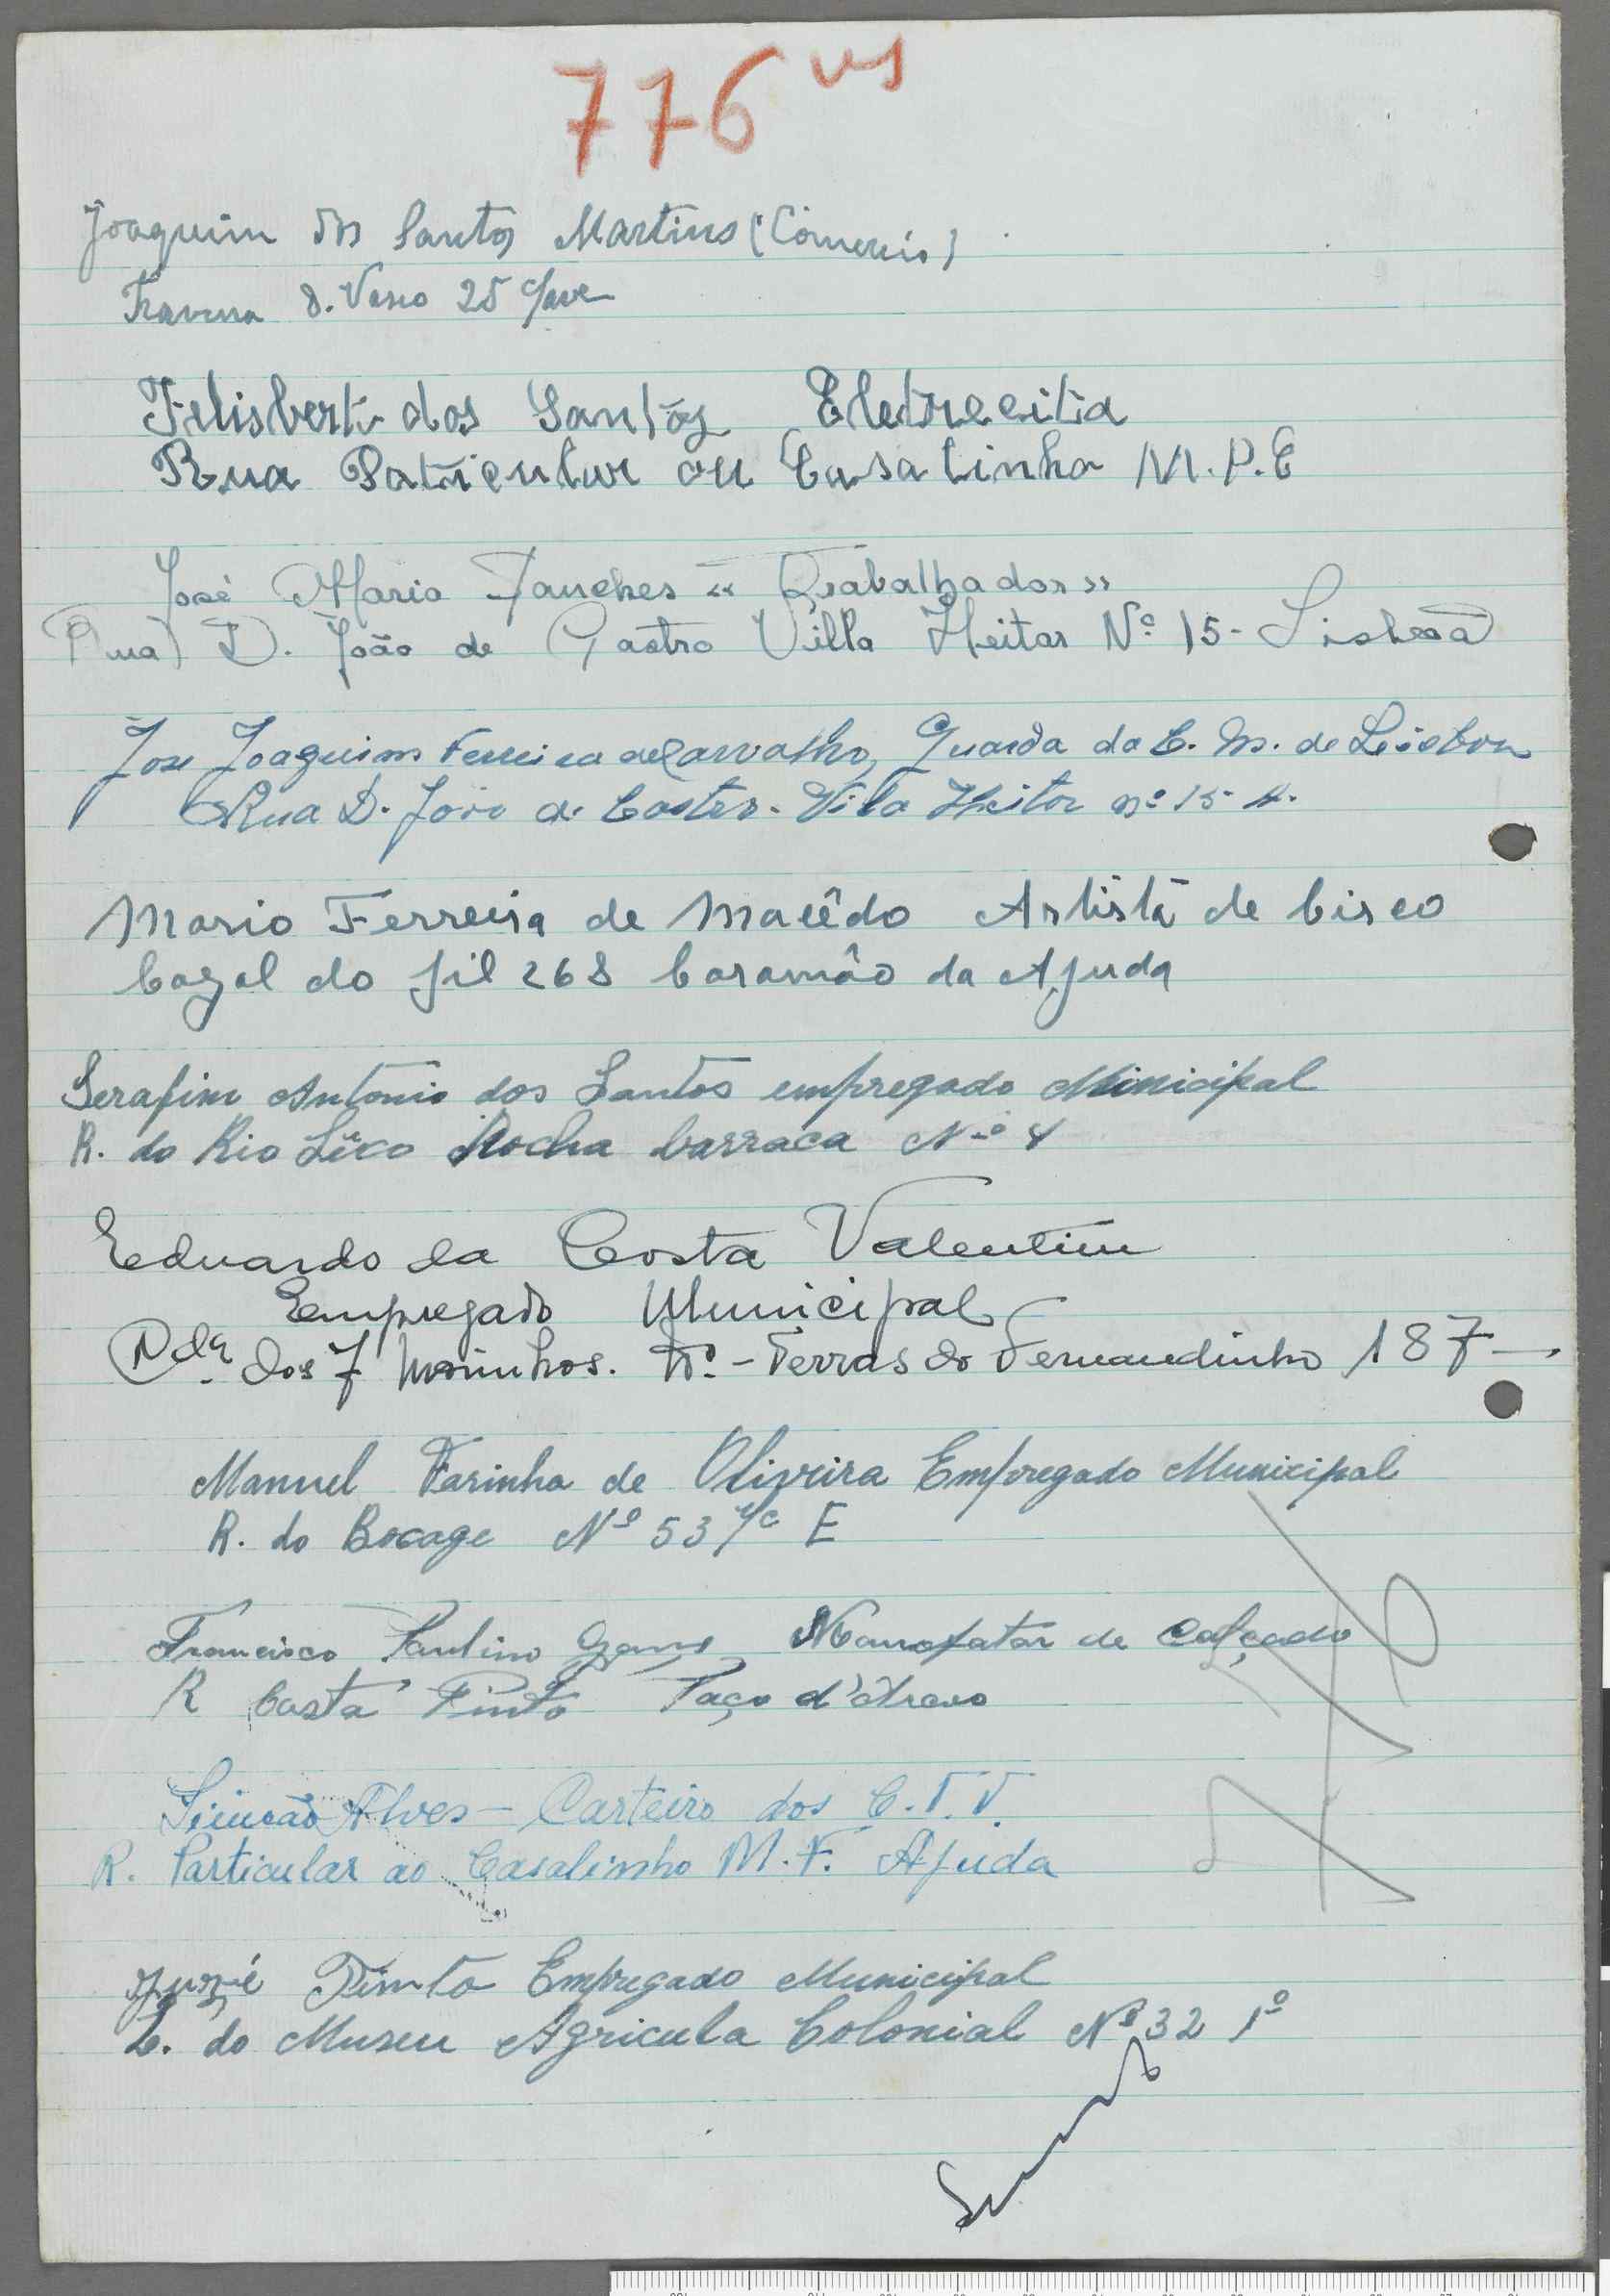 776 vs
Joaquim dos Santos Martins (Comercio)
Travessa D. Vasco 25 c/ave
Felisberto dos Santos Eletrecista
Rua Patricular ou Casalinho M.P.E
José Maria Sanches « Trabalhador »
Rua D. João de Castro Villa Heitor Nº 15 - Lisboa
Jose Joaquim Ferreira de Carvalho, Guarda da C. M. de Lisboa
Rua D. João de Castro. Vila Heitor nº 15-
Mario Ferreira de Macêdo Artista de Circo
Cazal do Gil 268 Caramão da Ajuda
Serafim Antonio dos Santos empregado Minicipal
R. do Rio Sêco Rocha barraca Nº 4
Eduardo da Costa Valentim
Empregado Municipal
dos 7 Moinhos. - Terras do Fernandinho 187
Manuel Farinha de Oliveira Empregado Municipal
R. do Bocage Nº 53 r/c E
Francisco Paulino Manofator de Calçado
R Costa Pinto Paço d'Arcos
Simeão Alves - Carteiro dos C.T.T.
R. Particular ao Casalinho M.F. Ajuda
Juzé Pinto Empregado Municipal
C. do Museu Agricula Colonial Nº 32 1º